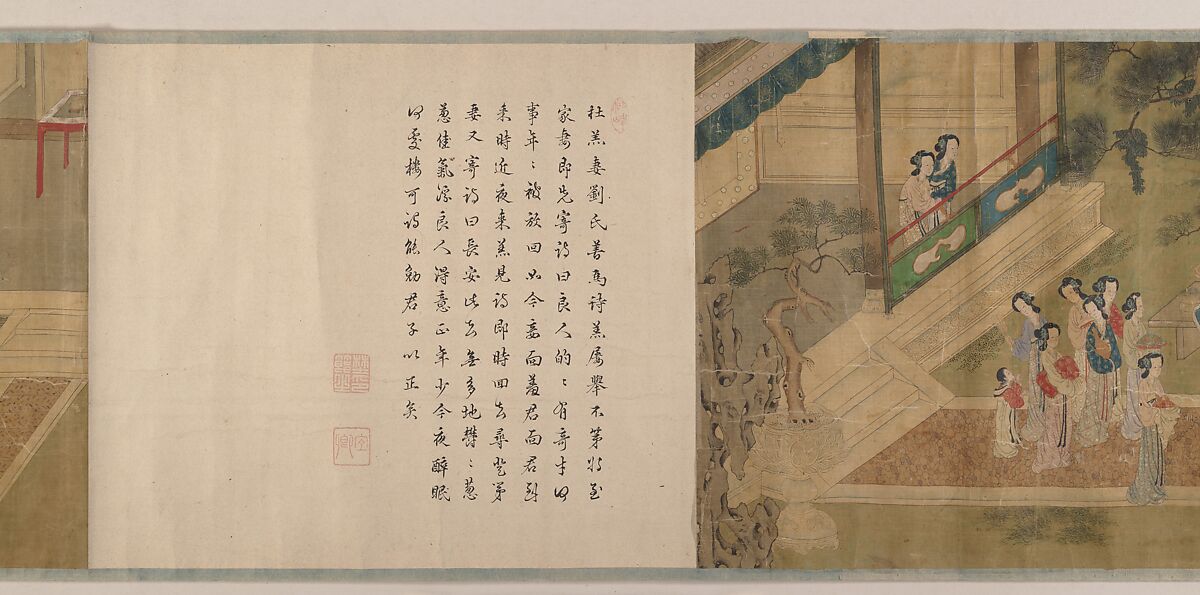 杜羔妻劉氏善為詩羔屢舉不第將至
家妻即先寄詩曰良人的〻有奇才何
事年〻被放回如今妾面羞君面君到
來時近夜來羔見詩即時回去尋登第
妻又寄詩曰長安此去無多地鬱〻葱
葱佳氣浮良人得意正年少今夜醉眠
何處樓可謂能勉君子以正矣